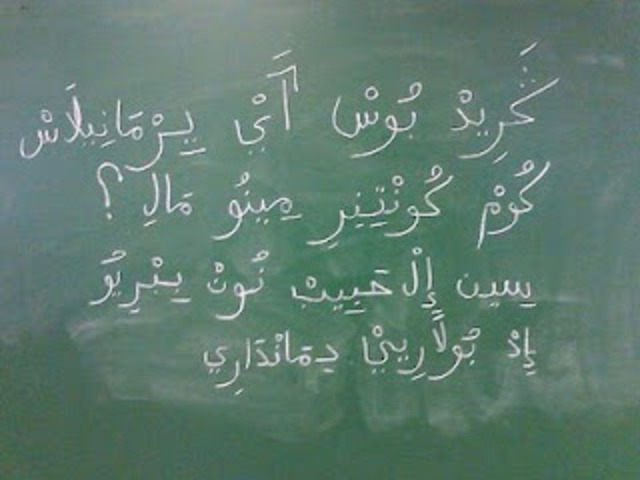 ڭَرِيدْ بُوسْ أَيْ يِرْمَانِيلَاسْ
كُومْ كُونْتِنِرِ مِينُو مَالِ ؟
سِين إِلْ حَبِيبْ نُونْ بِبْرِيُو
إِدْ بُولَارِيْ دِمَانْدَارِي